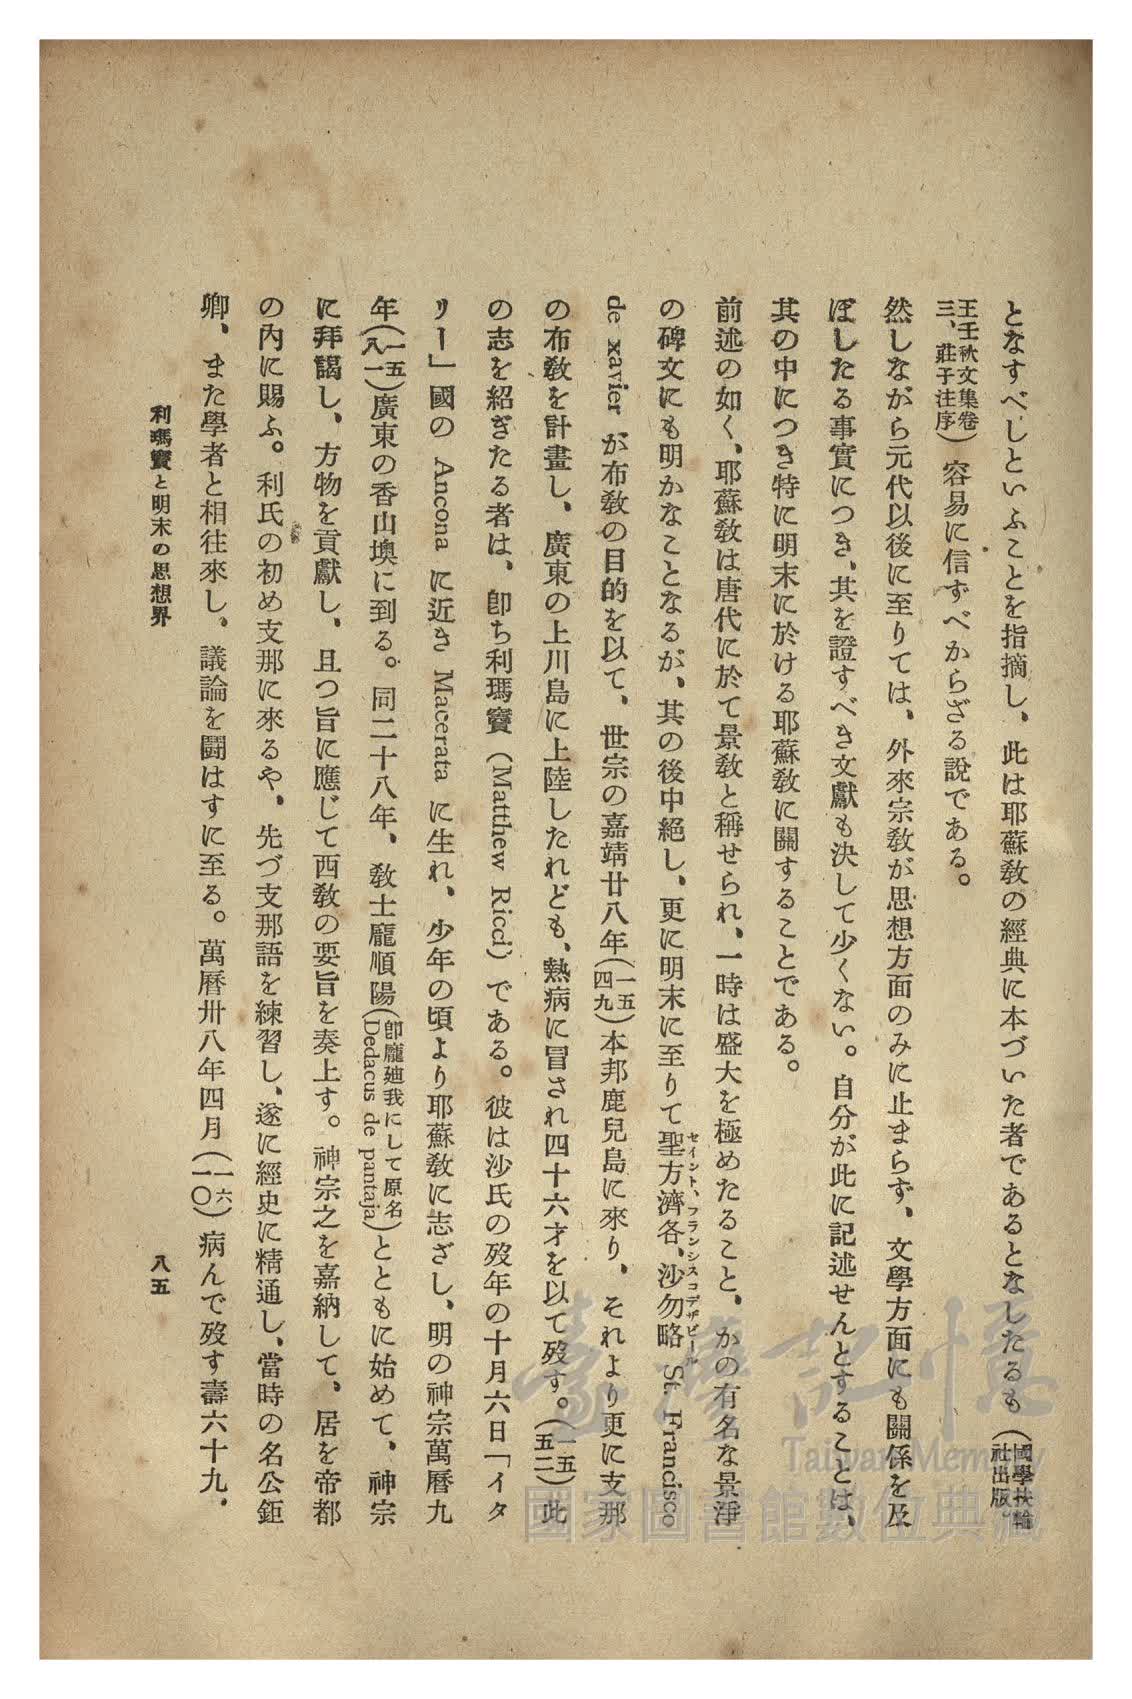 となすべしといふことを指摘し、此は耶蘇教の經典に本づいた者であるとなしたるも(國學扶輪社出版。
王壬秋文集卷三、莊子注序)容易に信ずべからざる說である。
然しながら元代以後に至りては、外來宗教が思想方面のみに止まらず、文學方面にも關係を及
ぼしたる事實につき、其を證すべき文獻も決して少くない。自分が此に記述せんとすることは、
其の中につき特に明末に於ける耶蘇教に關することである。
前述の如く、耶蘇教は唐代に於て景教と稱せられ、一時は盛大を極めたること、かの有名な景淨
の碑文にも明かなことなるが、其の後中絕し、更に明末に至りて聖方濟各、沙勿略 St. Francisco
セイント、フランシスコデザビール
de xavier が布教の目的を以て、世宗の嘉靖廿八年(一五四九)本邦鹿兒島に來り、それより更に支那
の布教を計畫し、廣東の上川島に上陸したれども、熱病に冒され四十六才を以て歿す。(一五五二)此
の志を紹ぎたる者は、卽ち利瑪竇(Matthew Ricci)である。彼は沙氏の歿年の十月六日「イタ
リー」國の Ancona に近き Macerata に生れ、少年の頃より耶蘇教に志ざし、明の神宗萬曆九
年(一五八一)廣東の香山墺に到る。同二十八年、教士龐順陽(卽龐廸我にして原名Dedacus de pantaja)とともに始めて、神宗
に拜謁し、方物を貢獻し、且つ旨に應じて西教の要旨を奏上す。神宗之を嘉納して、居を帝都
の內に賜ふ。利氏の初め支那に來るや、先づ支那語を練習し、遂に經史に精通し、當時の名公鉅
卿、また學者と相往來し、議論を鬪はすに至る。萬曆卅八年四月(一六一〇)病んで歿す壽六十九。
利瑪竇と明末の思想界
八五
臺灣記憶
Taiwan Memory
國家圖書館數位典藏